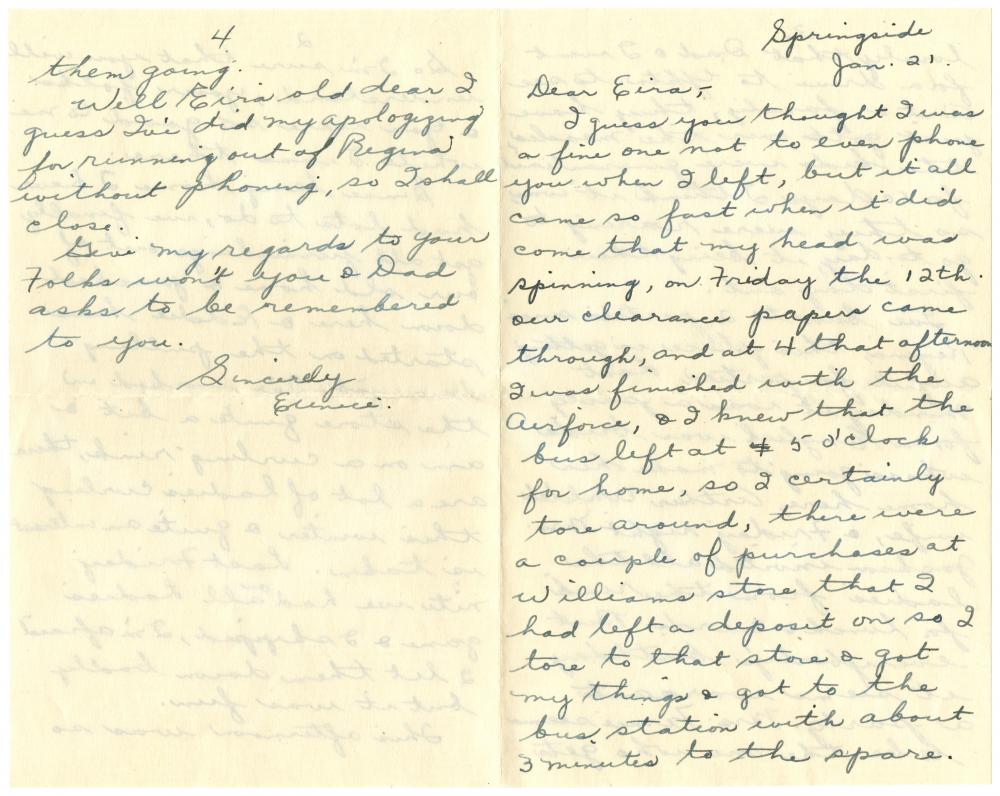 4
them going.
Well Eira old dear I
guess I've did my apologizing
for running out of Regina
without phoning, so I shall
close.
Give my regards to your
Folks won't you & Dad
asks to be remembered
to you.
Sincerely
Eunice.
Springside
Jan. 21.
Dear Eira,-
I guess you thought I was
a fine one not to even phone
you when I left, but it all
came so fast when it did
come that my head was
spinning, on Friday the 12th.
our clearance papers came
through, and at 4 that afternoon
I was finished with the
Airforce, & I knew that the
bus left at 5 o'clock
for home, so I certainly
tore around, there were
a couple of purchases at
Williams store that I
had left a deposit on so I
tore to that store & got
my things & got to the
bus station with about
3 minutes to the spare.